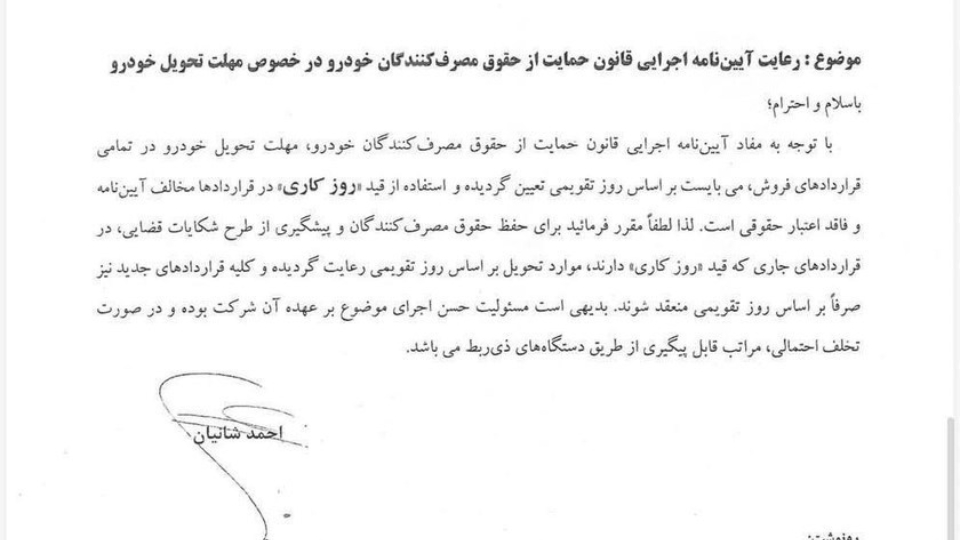 موضوع : رعایت آیین‌نامه اجرایی قانون حمایت از حقوق مصرف‌کنندگان خودرو در خصوص مهلت تحویل خودرو
باسلام و احترام؛
با توجه به مفاد آیین‌نامه اجرایی قانون حمایت از حقوق مصرف‌کنندگان خودرو، مهلت تحویل خودرو در تمامی
قراردادهای فروش، می بایست بر اساس روز تقویمی تعیین گردیده و استفاده از قید «روز کاری» در قراردادها مخالف آیین‌نامه
و فاقد اعتبار حقوقی است. لذا لطفاً مقرر فرمائید برای حفظ حقوق مصرف‌کنندگان و پیشگیری از طرح شکایات قضایی، در
قراردادهای جاری که قید «روز کاری» دارند، موارد تحویل بر اساس روز تقویمی رعایت گردیده و کلیه قراردادهای جدید نیز
صرفاً بر اساس روز تقویمی منعقد شوند. بدیهی است مسئولیت حسن اجرای موضوع بر عهده آن شرکت بوده و در صورت
تخلف احتمالی، مراتب قابل پیگیری از طریق دستگاه‌های ذی‌ربط می باشد.
احمد شانیان